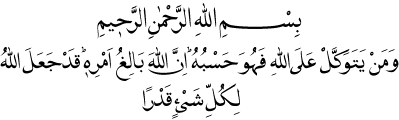 بِسْمِ اللهِ الرَّحْمٰنِ الرَّحِيْمِ
وَمَنْ يَتَوَكَّلْ عَلَى اللهِ فَهُوَ حَسْبُهُ ؕ اِنَّ اللهَ بَالِغُ اَمْرِهٖ ؕ قَدْ جَعَلَ اللهُ
لِكُلِّ شَیْئٍ قَدْرًا